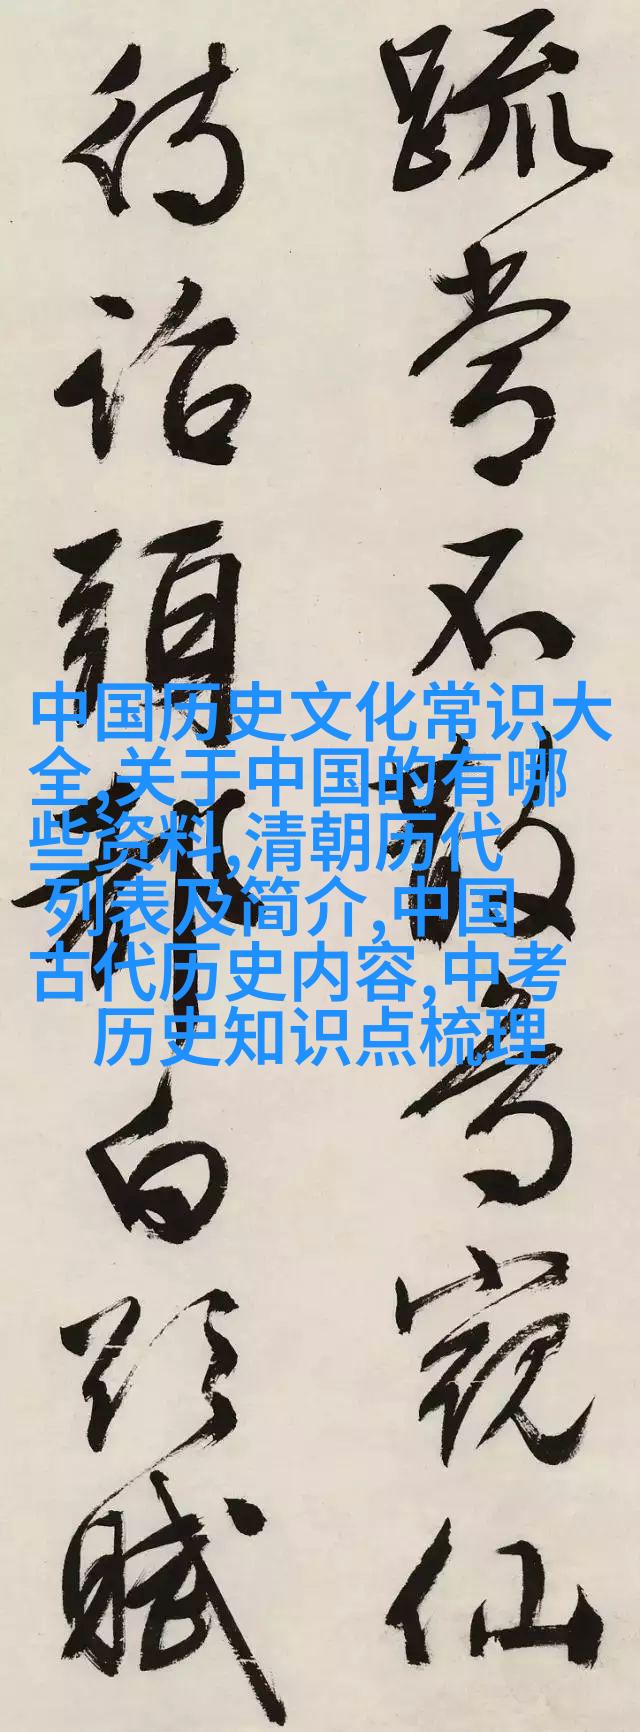 中国历史文化常识大
全,关于中国的有哪
些资料,清朝历代
列表及简介,中国
古代历史内容,中考
历史知识点梳理
不敢窺仙
待詔頭都白賦